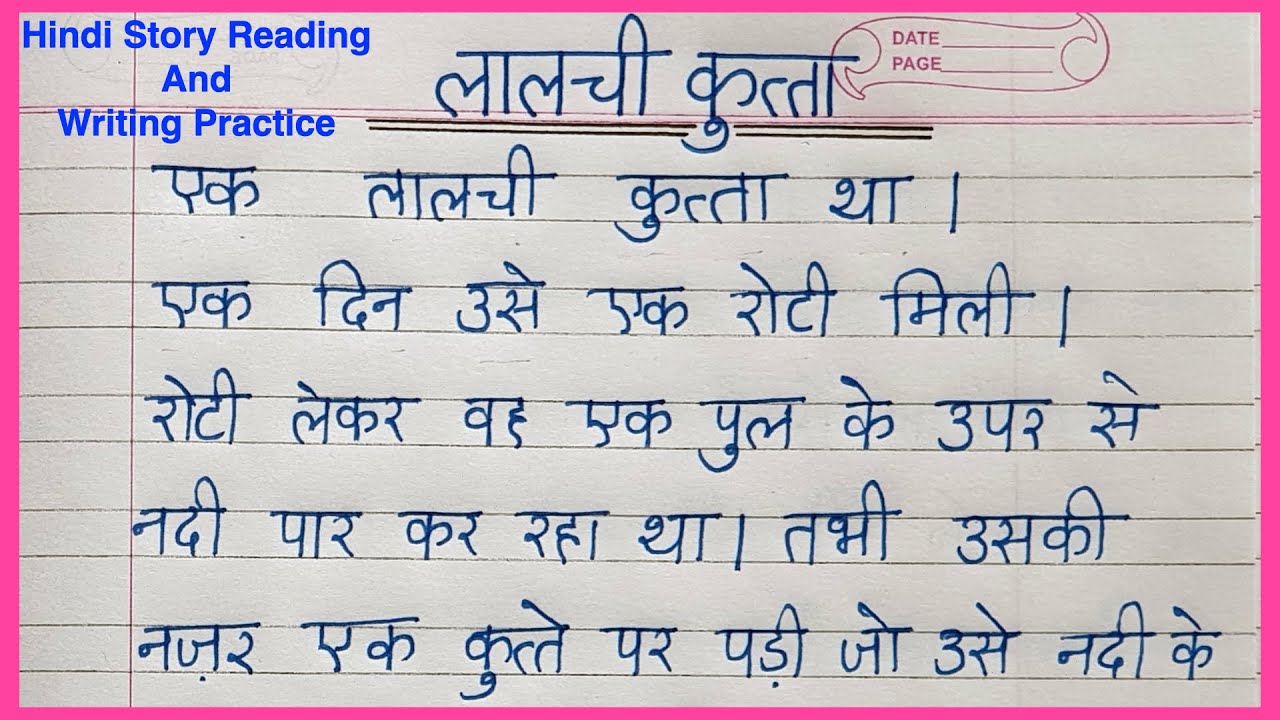 Hindi Story Reading
And
Writing Practice
DATE
PAGE
लालची कुत्ता
एक लालची कुत्ता था।
एक दिन उसे एक रोटी मिली।
रोटी लेकर वह एक पुल के उपर से
नदी पार कर रहा था। तभी उसकी
नज़र एक कुत्ते पर पड़ी जो उसे नदी के